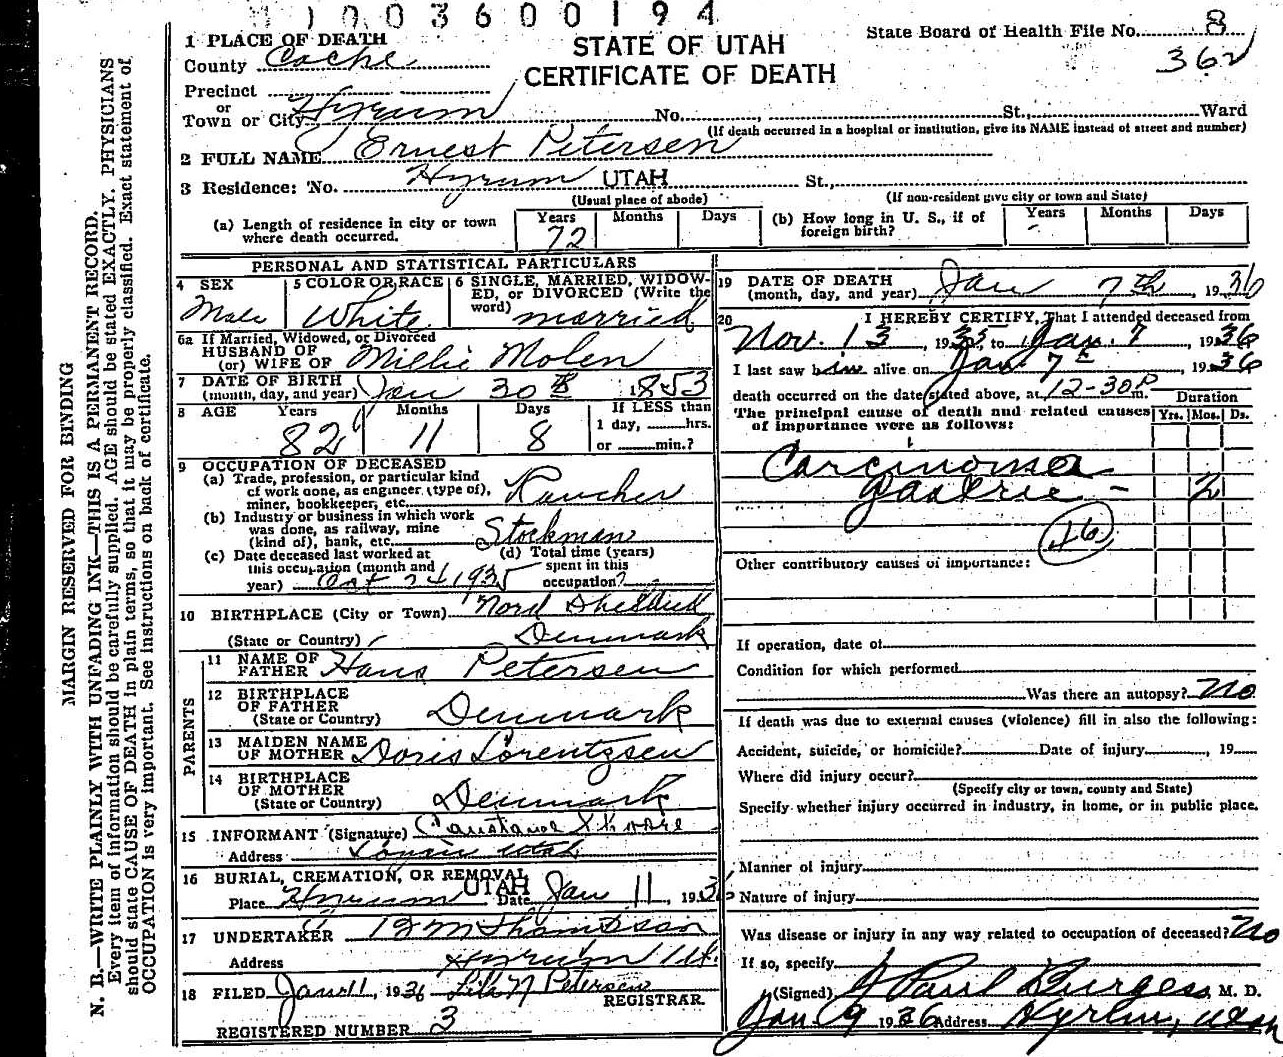 1003600194
State Board of Health File No. 8
362
STATE OF UTAH
CERTIFICATE OF DEATH
1 PLACE OF DEATH
County Cache
Precinct
or
Town or City Hyrum No. , St., Ward
(If death occurred in a hospital or institution, give its NAME instead of street and number)
2 FULL NAME Ernest Petersen
3 Residence: No. Hyrum UTAH St.,
(Usual place of abode) (If non-resident give city or town and State)
(a) Length of residence in city or town where death occurred. Years 72 Months Days
(b) How long in U. S., if of foreign birth? Years - Months Days
PERSONAL AND STATISTICAL PARTICULARS
4 SEX Male
5 COLOR OR RACE White
6 SINGLE, MARRIED, WIDOWED, or DIVORCED (Write the word) married
6a If Married, Widowed, or Divorced
HUSBAND OF
(or) WIFE OF Millie Molen
7 DATE OF BIRTH
(month, day, and year) Jan 30th 1853
8 AGE Years 82 Months 11 Days 8 If LESS than 1 day, hrs. or min.?
9 OCCUPATION OF DECEASED
(a) Trade, profession, or particular kind
of work done, as engineer (type of),
miner, bookkeeper, etc. Rancher
(b) Industry or business in which work
was done, as railway, mine
(kind of), bank, etc. Stockman
(c) Date deceased last worked at
this occupation (month and
year) Oct 24 1935
(d) Total time (years)
spent in this
occupation?
10 BIRTHPLACE (City or Town) Nord
(State or Country) Denmark
PARENTS
11 NAME OF
FATHER Hans Petersen
12 BIRTHPLACE
OF FATHER
(State or Country) Denmark
13 MAIDEN NAME
OF MOTHER Doris Lorentzsen
14 BIRTHPLACE
OF MOTHER
(State or Country) Denmark
15 INFORMANT (Signature)
Address Logan Utah
16 BURIAL, CREMATION, OR REMOVAL
UTAH
Place Hyrum Date Jan 11, 1936
17 UNDERTAKER Thompson
Address Hyrum Ut.
18 FILED Jan 11, 1936 Petersen
REGISTRAR
REGISTERED NUMBER 3
19 DATE OF DEATH
(month, day, and year) Jan 7th, 1936
20 I HEREBY CERTIFY, That I attended deceased from
Nov. 13, 1935, to Jan. 7, 1936
I last saw him alive on Jan 7th, 1936
death occurred on the date stated above, at 12-30 P m.
The principal cause of death and related causes
of importance were as follows:
Duration
Yrs. Mos. Ds.
Carcinoma
gastric - 2
46
Other contributory causes of importance:
If operation, date of
Condition for which performed
Was there an autopsy? No
If death was due to external causes (violence) fill in also the following:
Accident, suicide, or homicide? Date of injury , 19
Where did injury occur?
(Specify city or town, county and State)
Specify whether injury occurred in industry, in home, or in public place.
Manner of injury
Nature of injury
Was disease or injury in any way related to occupation of deceased? No
If so, specify
(Signed) J Paul Burgess, M. D.
Jan 9 1936 Address Hyrum, Utah
MARGIN RESERVED FOR BINDING
N. B.—WRITE PLAINLY WITH UNFADING INK—THIS IS A PERMANENT RECORD.
Every item of information should be carefully supplied. AGE should be stated EXACTLY. PHYSICIANS
should state CAUSE OF DEATH in plain terms, so that it may be properly classified. Exact statement of
OCCUPATION is very important. See instructions on back of certificate.